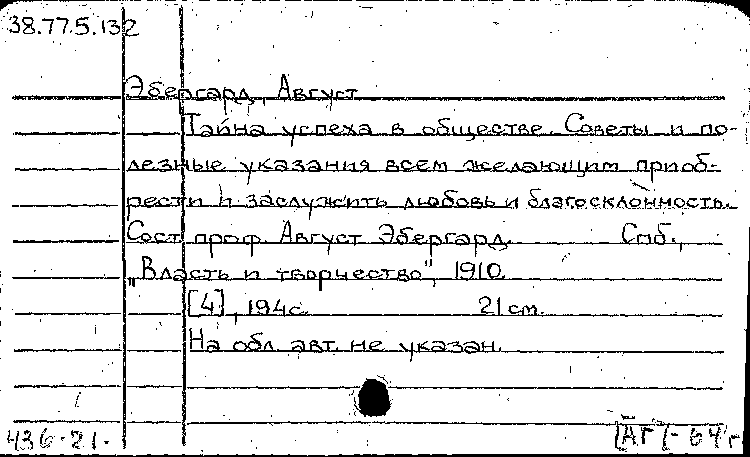 38.77.5.132
Эбергард, Август
Тайна успеха в обществе. Советы и по-
лезные указания всем желающим приоб-
рести и заслужить любовь и благосклонность.
Сост. проф. Август Эбергард. Спб.,
„Власть и творчество", 1910.
[4], 194с. 21 см.
На обл. авт. не указан.
436-21. [АГ]-64г